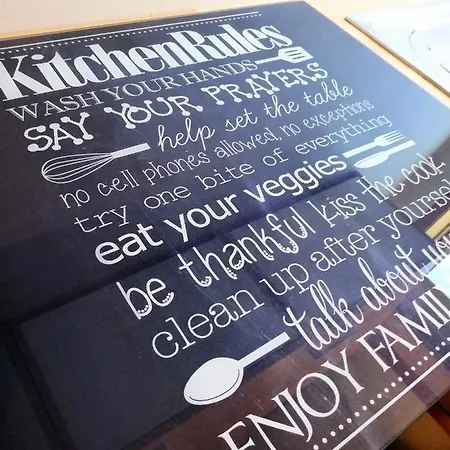 KitchenRules
WASH YOUR HANDS
SAY YOUR PRAYERS
help set the table
no cell phones allowed no exceptions
try one bite of everything
eat your veggies
be thankful kiss the cook
clean up after yourself
talk about your
ENJOY FAMI